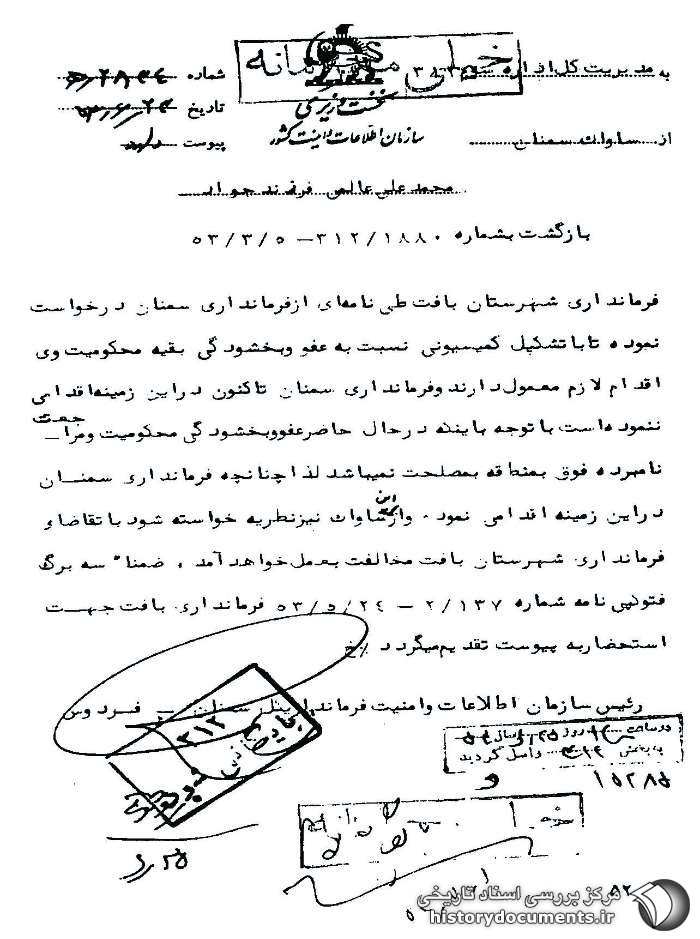 خیلی محرمانه
به مدیریت کل اداره سوم ۳۱۲
شماره
نخست وزیری
تاریخ
سازمان اطلاعات و امنیت کشور
از ساواک سمنان
پیوست دارد
محمد علی عالمی فرزند جواد
بازگشت بشماره ۳۱۲/۱۸۸۰ – ۵۳/۳/۵
فرمانداری شهرستان بافت طی نامه‌ای ازفرمانداری سمنان درخواست
نموده تاباتشکیل کمیسیونی نسبت به عفو وبخشودگی بقیه محکومیت وی
اقدام لازم معمول دارند وفرمانداری سمنان تاکنون دراین زمینه اقدامی
ننموده است با توجه باینکه درحال حاضرعفووبخشودگی محکومیت ومرا
جعت
نامبرده فوق بمنطقه بمصلحت نمیباشد لذا چنانچه فرمانداری سمنان
دراین زمینه اقدامی نمود. وازاین ساواک نیزنظریه خواسته شود با تقاضای
فرمانداری شهرستان بافت مخالفت بعمل خواهد آمد . ضمنا" سه برگ
فتوکپی نامه شماره ۲/۱۳۷ – ۵۳/۵/۲۴ فرمانداری بافت جهت
استحضار به پیوست تقدیم میگردد
رئیس سازمان اطلاعات وامنیت فرمانداریکل سمنان – فردوس
۳۱۲
در ساعت روز سال
به بخش ۳۱۲ واصل گردید
۱۵۲۸۵
مرکز بررسی اسناد تاریخی
historydocuments.ir